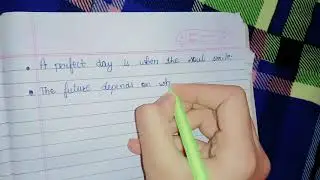 • A perfect day is when the soul smile.
• The future depends on wh